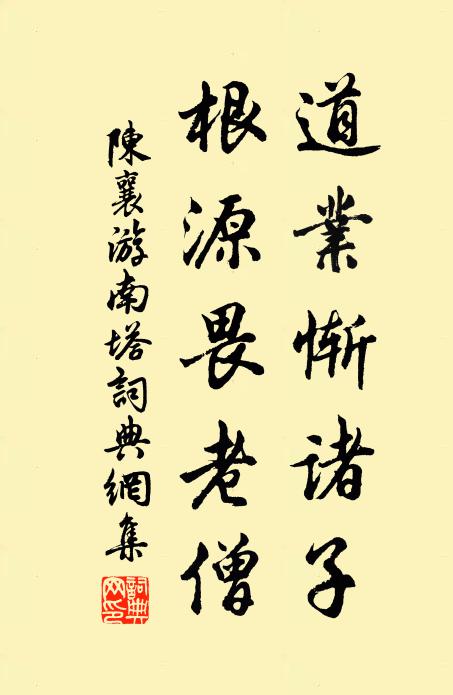 道業慚諸子
根源畏老僧
陳襄游南塔詞典網集
詞典
网印